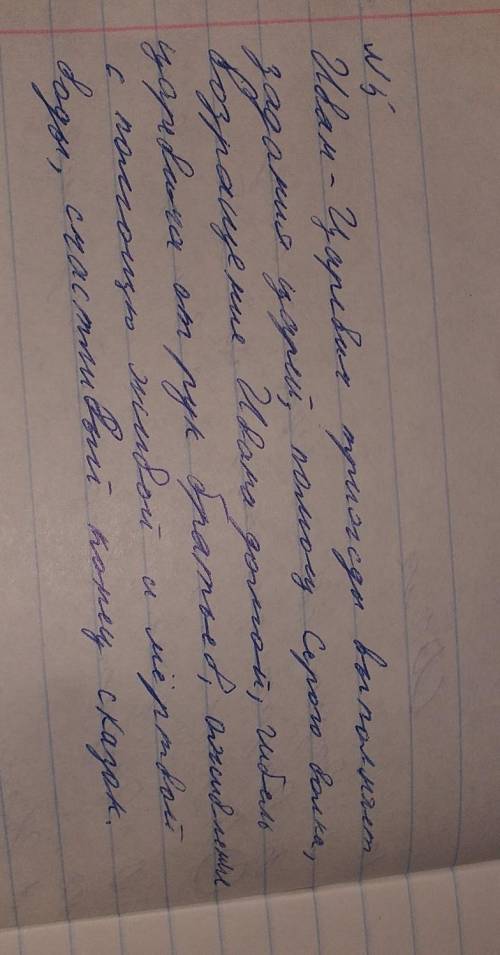 №5
Иван-Царевич трижды выполняет
задания царей, помощ Серого волка,
возращение Ивана домой, гибель
царевича от рук братьев, оживление
с помощью живой и мёртвой
воды, счастливый конец сказок.